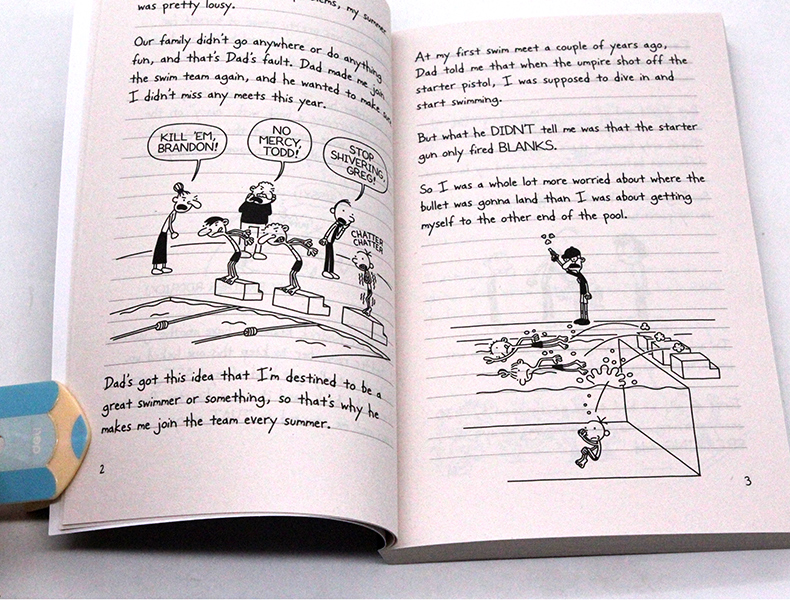 my summer
was pretty lousy.
Our family didn't go anywhere or do anything
fun, and that's Dad's fault. Dad made me join
the swim team again, and he wanted to make sure
I didn't miss any meets this year.
KILL 'EM,
BRANDON!
NO
MERCY,
TODD!
STOP
SHIVERING,
GREG!
CHATTER
CHATTER
Dad's got this idea that I'm destined to be a
great swimmer or something, so that's why he
makes me join the team every summer.
2
At my first swim meet a couple of years ago,
Dad told me that when the umpire shot off the
starter pistol, I was supposed to dive in and
start swimming.
But what he DIDN'T tell me was that the starter
gun only fired BLANKS.
So I was a whole lot more worried about where the
bullet was gonna land than I was about getting
myself to the other end of the pool.
3
deli